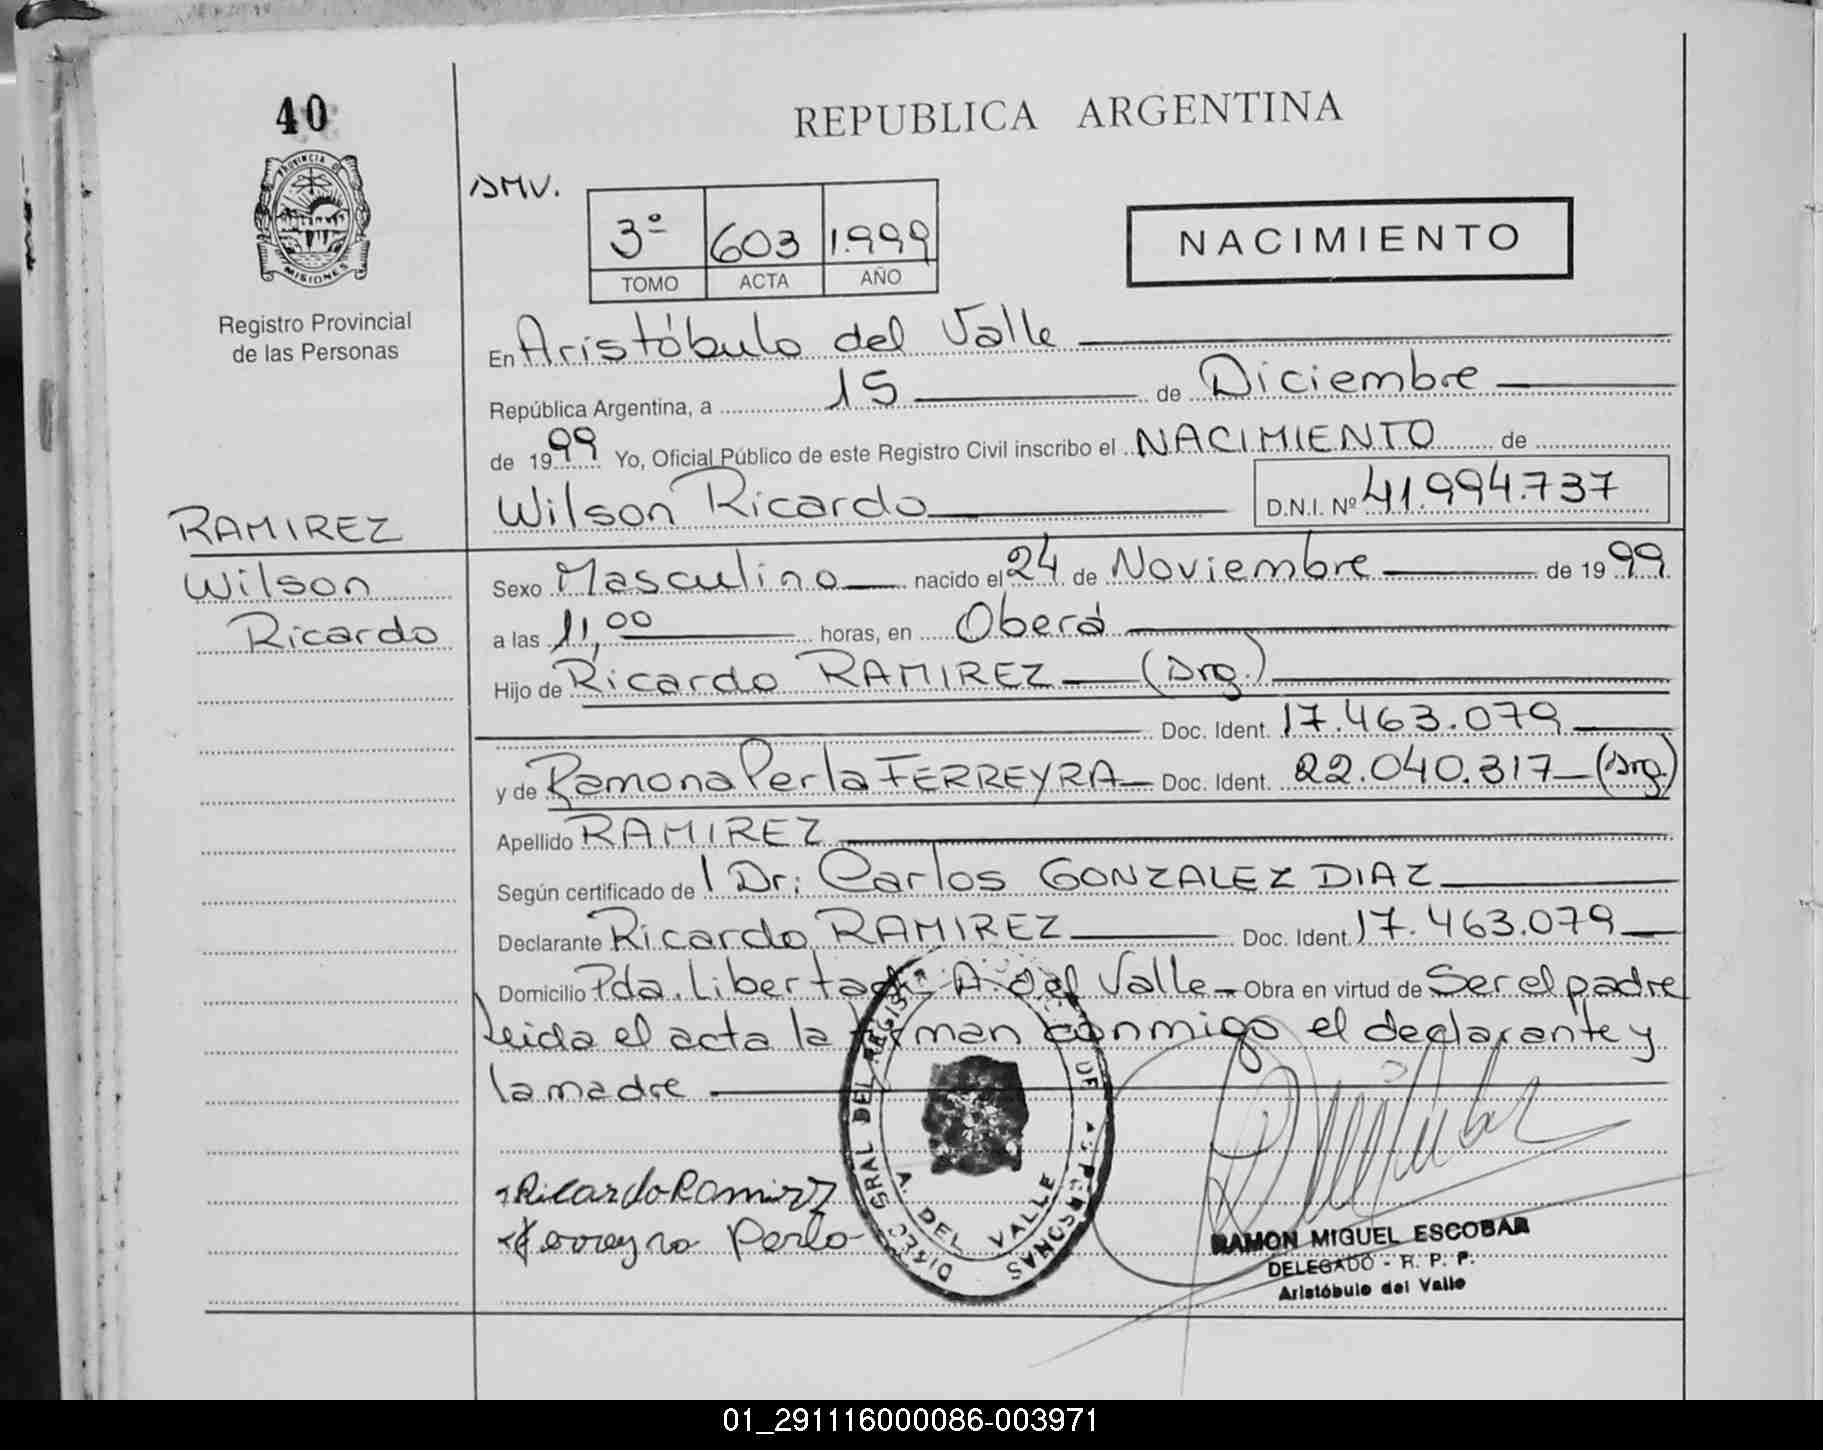 40
REPUBLICA ARGENTINA
PROVINCIA DE
MISIONES
Registro Provincial
de las Personas
SMV.
3º 603 1.999
TOMO ACTA AÑO
NACIMIENTO
En Aristóbulo del Valle
República Argentina, a 15 de Diciembre
de 1999 Yo, Oficial Público de este Registro Civil inscribo el NACIMIENTO de
Wilson Ricardo D.N.I. Nº 41.994.737
RAMIREZ
Wilson
Ricardo
Sexo Masculino nacido el 24 de Noviembre de 1999
a las 11,00 horas, en Oberá
Hijo de Ricardo RAMIREZ (Arg.)
Doc. Ident. 17.463.079
y de Ramona Perla FERREYRA Doc. Ident. 22.040.317 (Arg.)
Apellido RAMIREZ
Según certificado de 1 Dr: Carlos GONZALEZ DIAZ
Declarante Ricardo RAMIREZ Doc. Ident. 17.463.079
Domicilio Pda. Libertad A. del Valle Obra en virtud de Ser el padre
leida el acta la firman conmigo el declarante y
la madre
Ricardo Ramirez
Ferreyra Perla
DIREC GRAL DEL REGIST DE LAS PERSONAS
A. DEL VALLE
RAMON MIGUEL ESCOBAR
DELEGADO - R. P. P.
Aristóbulo del Valle
01_291116000086-003971